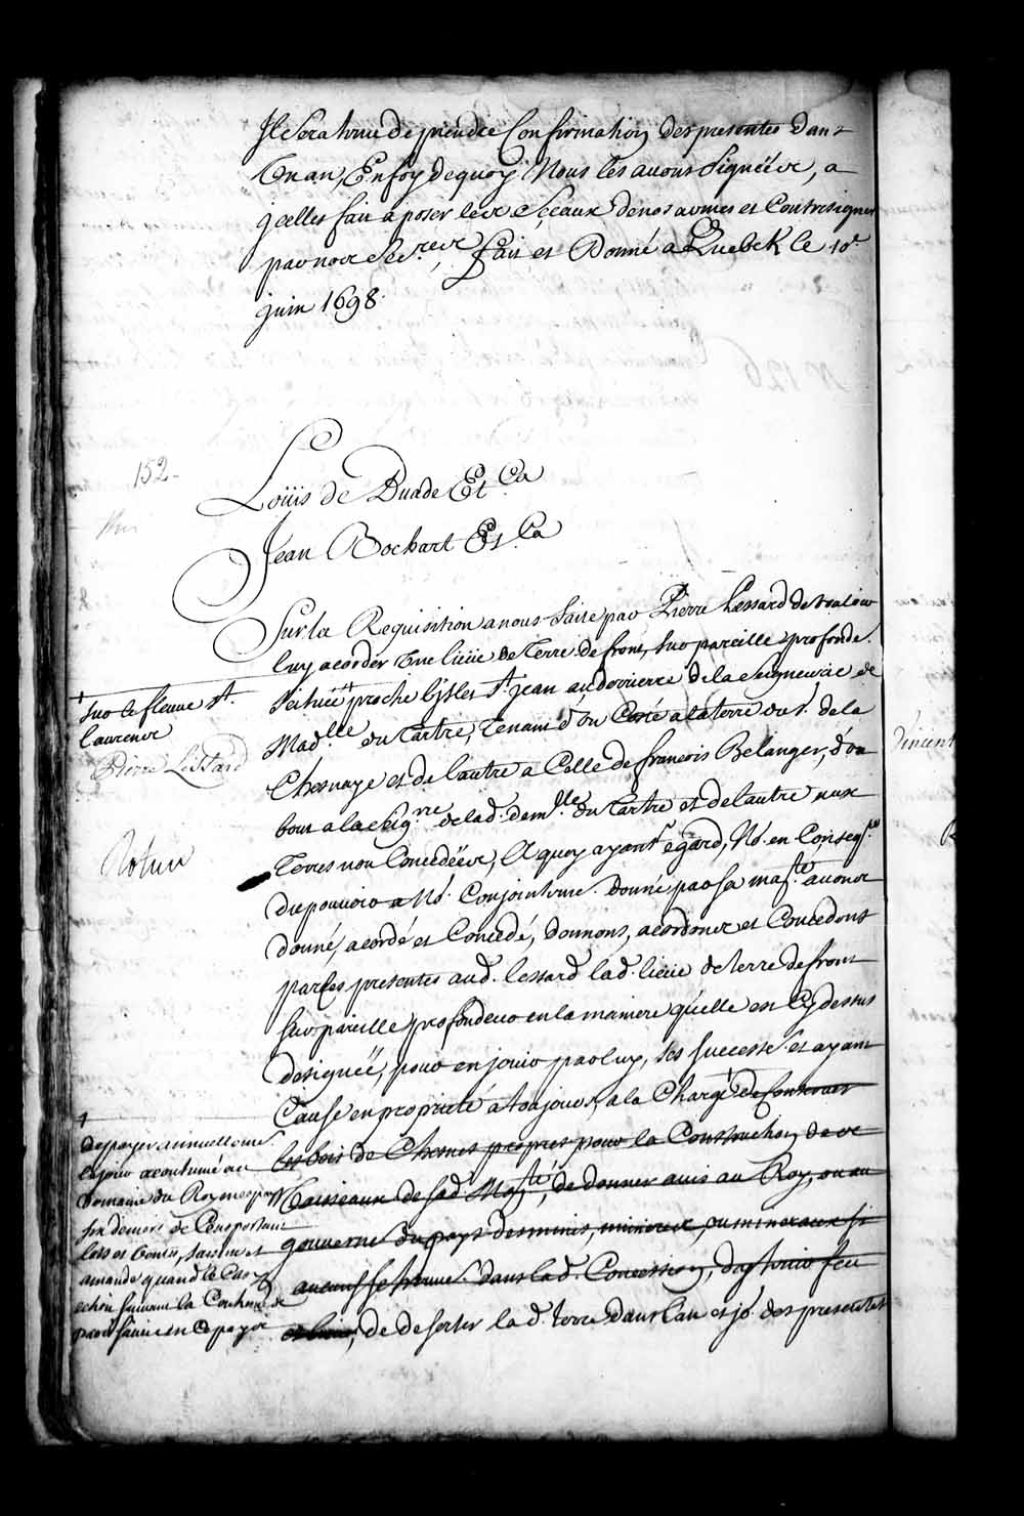 Il sera tenu de prendre Confirmation des presentes dans
Un an, En foy de quoy Nous les auons signéés, a
jcelles fait aposer les sceaux de nos armes et Contresigner
par nos Secres, fait et Donné a Quebek le 10e
juin 1698.
152-
Loüis de Buade Et.Ca
Jean Bochart Et.Ca
Sur la Requisition a nous faite par Pierre Lessard de vouloir
luy acorder Une lieüe de Terre de front, sur pareille profonde.
scituéé proche lisles St. jean au derrierre de la Seigneurie de
+ sur le fleuue St.
laurence
Madlle du Tartre, Tenant d'un Costé a la terre du Sr. de la
Pierre Lessard
Chesnaye et de l'autre a Celle de francois Belanger, d'un
bout a la seigre de lad. demlle du Tartre et de lautre aux
Terres non Concedéés, A quoy ayant egard, Ns. en Conseqce
du pouuoir a Ns. Conjointeme. Donné par sa maté. auons
donné, acordé et Concedé, donnons, acordons et Concedons
par ces presentes aud. lessard lad. lieüe de terre de front
sur pareille profondeur en la maniere qu'elle est Cy dessus
designéé, pour en jouir par luy, ses successe. et ayant
Cause en proprieté a toujours, a la Charge de Conseruer
les bois de Chesnes propres pour la Construction des
Vaisseaux de sad. Mate, de donner auis au Roy, ou au
gouuerne. du pays des mines, minieres, ou mineraux si
aucuns se trouue. dans lad. Concession, d'y tenir feu
et lieu, de deserter lad. terre dans l'an et jo. des presentes
+
de payer annuelleme.
le jour acoutumé au
Domaine du Roy
six deniers de Cens portant
lots et Ventes, saisine et
amande quand le Cas y
echéra suiuant la Coutume de
paris suiuie en Ce pays